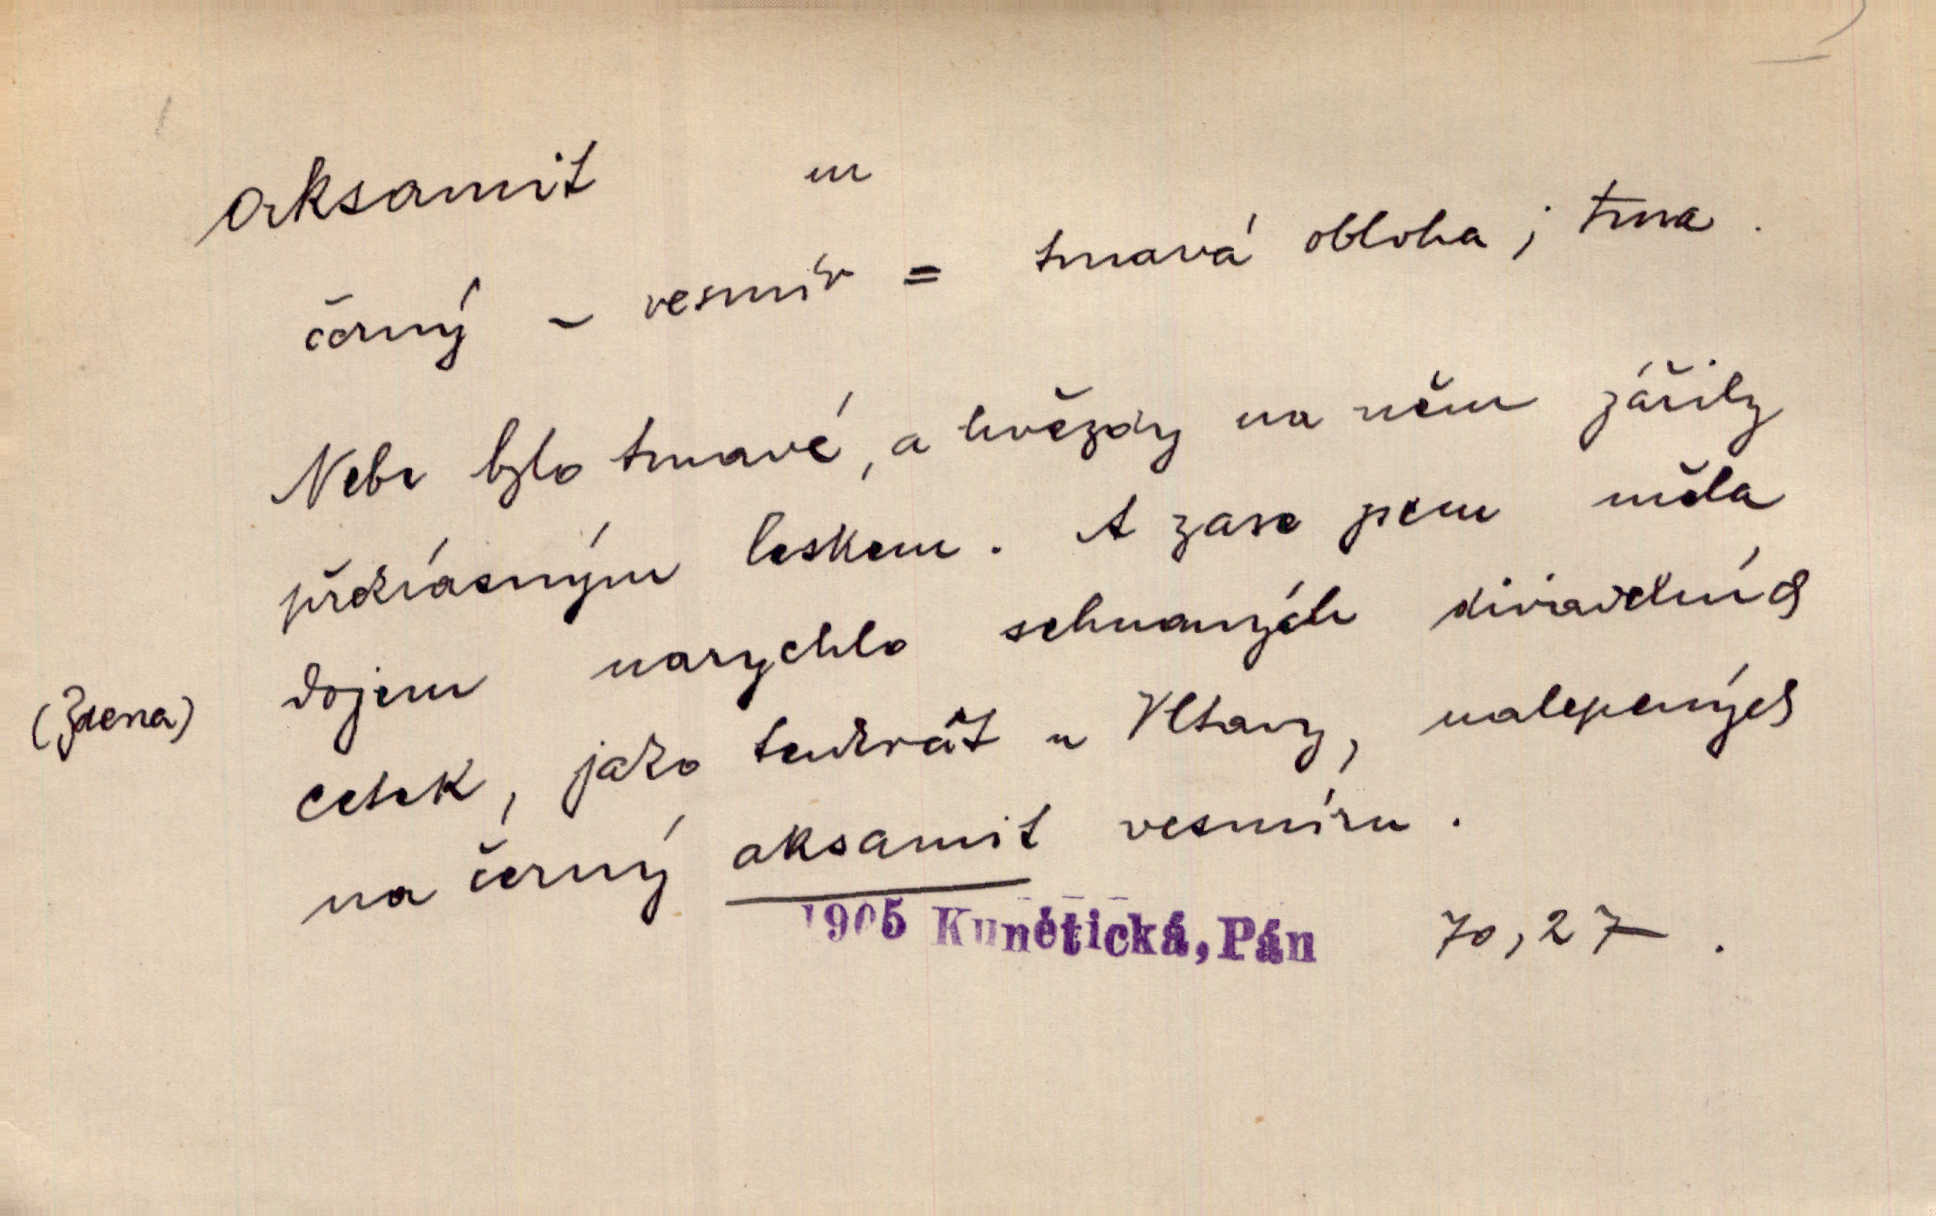 aksamit m
černý – vesmír = tmavá obloha; tma.
Nebe bylo tmavé, a hvězdy na něm zářily
překrásným leskem. A zase jsem měla
dojem narychlo sehnaných divadelních
(Zdena) cetek, jako tenkrát u Vltavy, nalepených
na černý aksamit vesmíru.
1905 Kunětická, Pán 70,27.